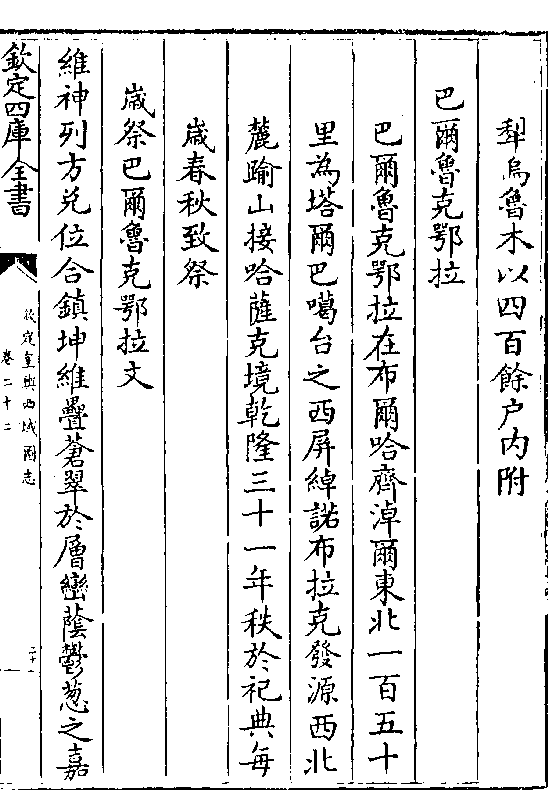 犁烏魯木以四百餘户内附
巴爾魯克鄂拉
巴爾魯克鄂拉在布爾哈齊淖爾東北一百五十
里為塔爾巴噶台之西屏綽諾布拉克發源西北
麓踰山接哈薩克境乾隆三十一年秩於祀典每
歲春秋致祭
歲祭巴爾魯克鄂拉文
維神列方兑位合鎮坤維疊蒼翠於層巒蔭鬱葱之嘉
欽定四庫全書
欽定皇輿西域圖志
卷二十二
二十一